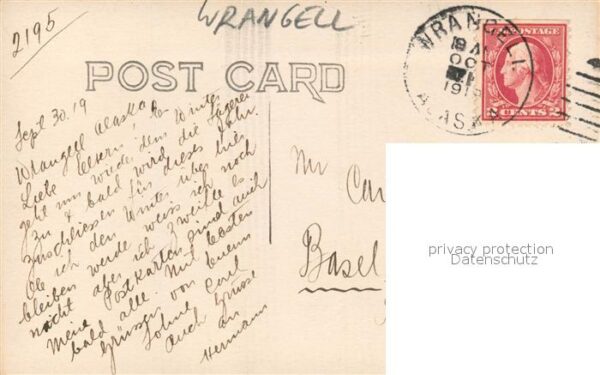 2195
WRANGELL
POST CARD
WRANGELL
19 A
OCT
1
1919
ALASKA
U.S. POSTAGE
2 CENTS 2
Sept 30. 19
Wrangell Alaska
Liebe Eltern! Es
geht nun wieder dem Winter
zu & bald wird die Sägerei
zuschliessen für dieses Jahr.
Ob ich den Winter über hier
bleiben werde weiss ich noch
nicht aber ich zweifle es
Meine Postkarten sind auch
bald alle. Mit besten
Grüssen von Eurem
Sohne Carl
Auch Grüsse
an
Hermann
Mr Car
Basel
privacy protection
Datenschutz